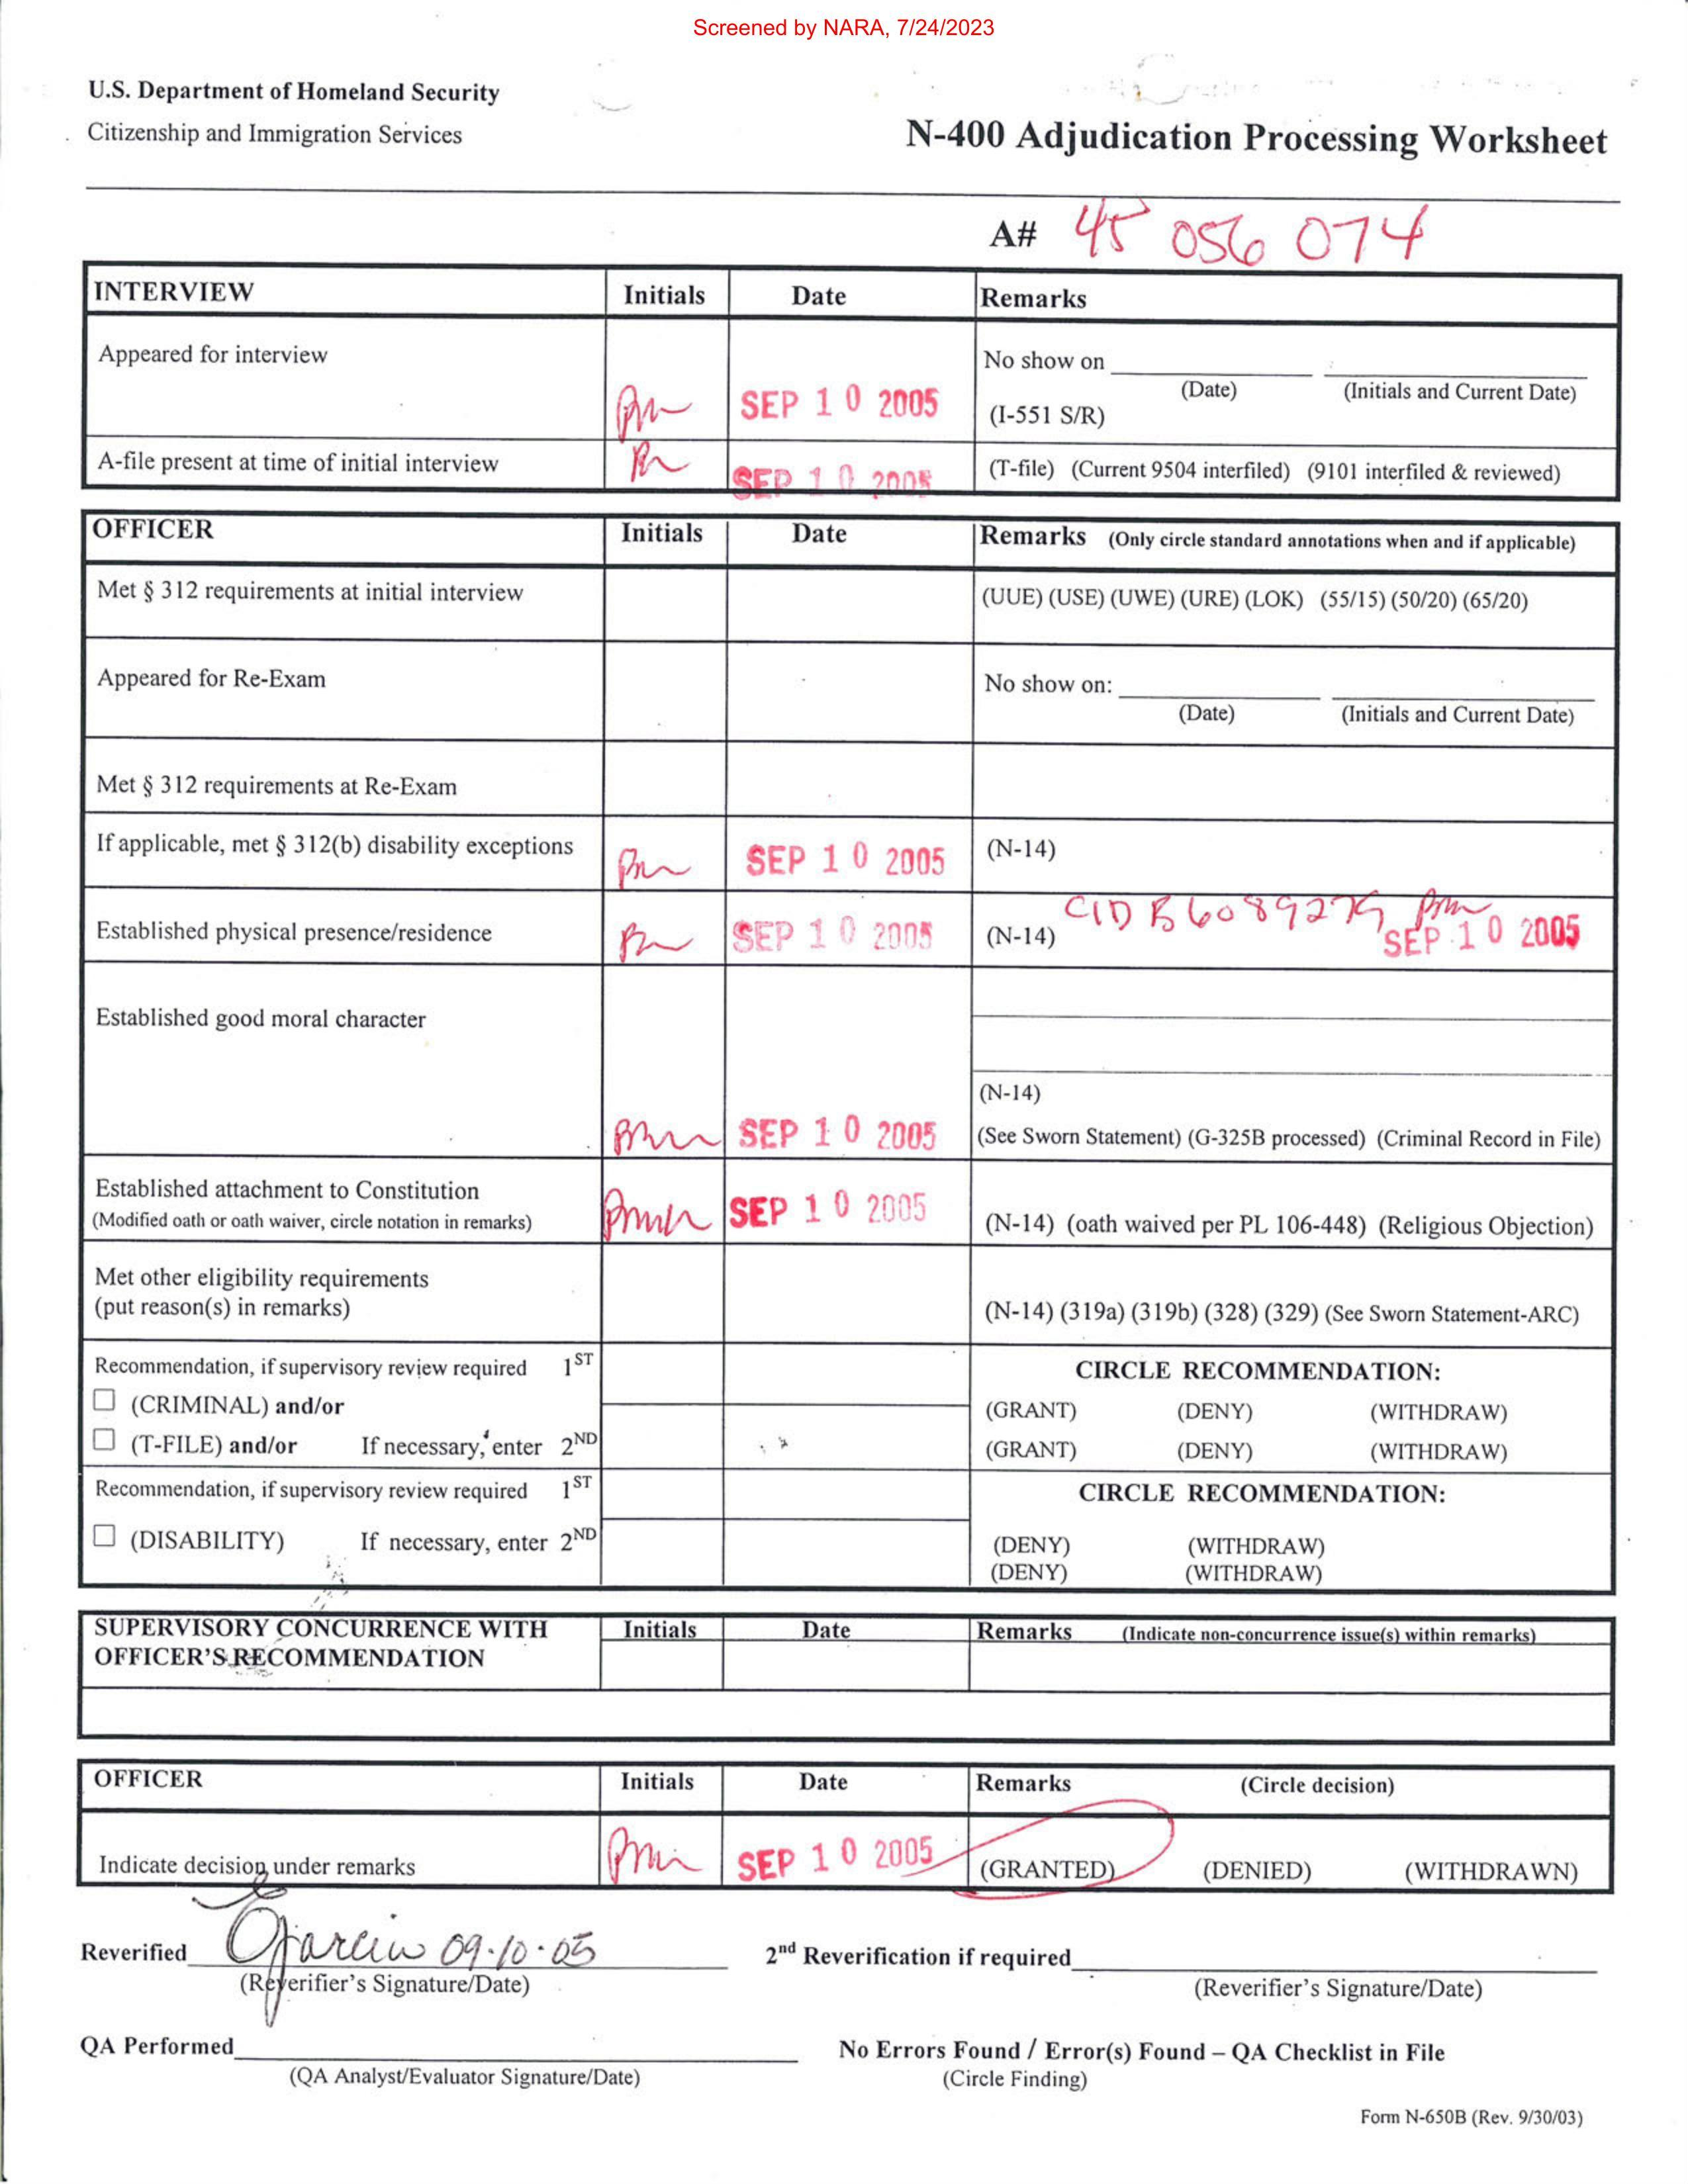 Screened by NARA, 7/24/2023
U.S. Department of Homeland Security
Citizenship and Immigration Services
N-400 Adjudication Processing Worksheet
A# 45 056 074
INTERVIEW Initials Date Remarks
Appeared for interview SEP 10 2005 No show on
(Date) (Initials and Current Date)
(I-551 S/R)
A-file present at time of initial interview SEP 10 2005 (T-file) (Current 9504 interfiled) (9101 interfiled & reviewed)
OFFICER Initials Date Remarks (Only circle standard annotations when and if applicable)
Met § 312 requirements at initial interview (UUE) (USE) (UWE) (URE) (LOK) (55/15) (50/20) (65/20)
Appeared for Re-Exam No show on:
(Date) (Initials and Current Date)
Met § 312 requirements at Re-Exam
If applicable, met § 312(b) disability exceptions SEP 10 2005 (N-14)
Established physical presence/residence SEP 10 2005 (N-14) CID SEP 10 2005
Established good moral character
(N-14)
SEP 10 2005 (See Sworn Statement) (G-325B processed) (Criminal Record in File)
Established attachment to Constitution
(Modified oath or oath waiver, circle notation in remarks) SEP 10 2005 (N-14) (oath waived per PL 106-448) (Religious Objection)
Met other eligibility requirements
(put reason(s) in remarks) (N-14) (319a) (319b) (328) (329) (See Sworn Statement-ARC)
Recommendation, if supervisory review required 1ST CIRCLE RECOMMENDATION:
(CRIMINAL) and/or (GRANT) (DENY) (WITHDRAW)
(T-FILE) and/or If necessary, enter 2ND (GRANT) (DENY) (WITHDRAW)
Recommendation, if supervisory review required 1ST CIRCLE RECOMMENDATION:
(DISABILITY) If necessary, enter 2ND (DENY) (WITHDRAW)
(DENY) (WITHDRAW)
SUPERVISORY CONCURRENCE WITH Initials Date Remarks (Indicate non-concurrence issue(s) within remarks)
OFFICER'S RECOMMENDATION
OFFICER Initials Date Remarks (Circle decision)
Indicate decision under remarks SEP 10 2005 (GRANTED) (DENIED) (WITHDRAWN)
Reverified 09.10.05 2nd Reverification if required
(Reverifier's Signature/Date) (Reverifier's Signature/Date)
QA Performed No Errors Found / Error(s) Found – QA Checklist in File
(QA Analyst/Evaluator Signature/Date) (Circle Finding)
Form N-650B (Rev. 9/30/03)